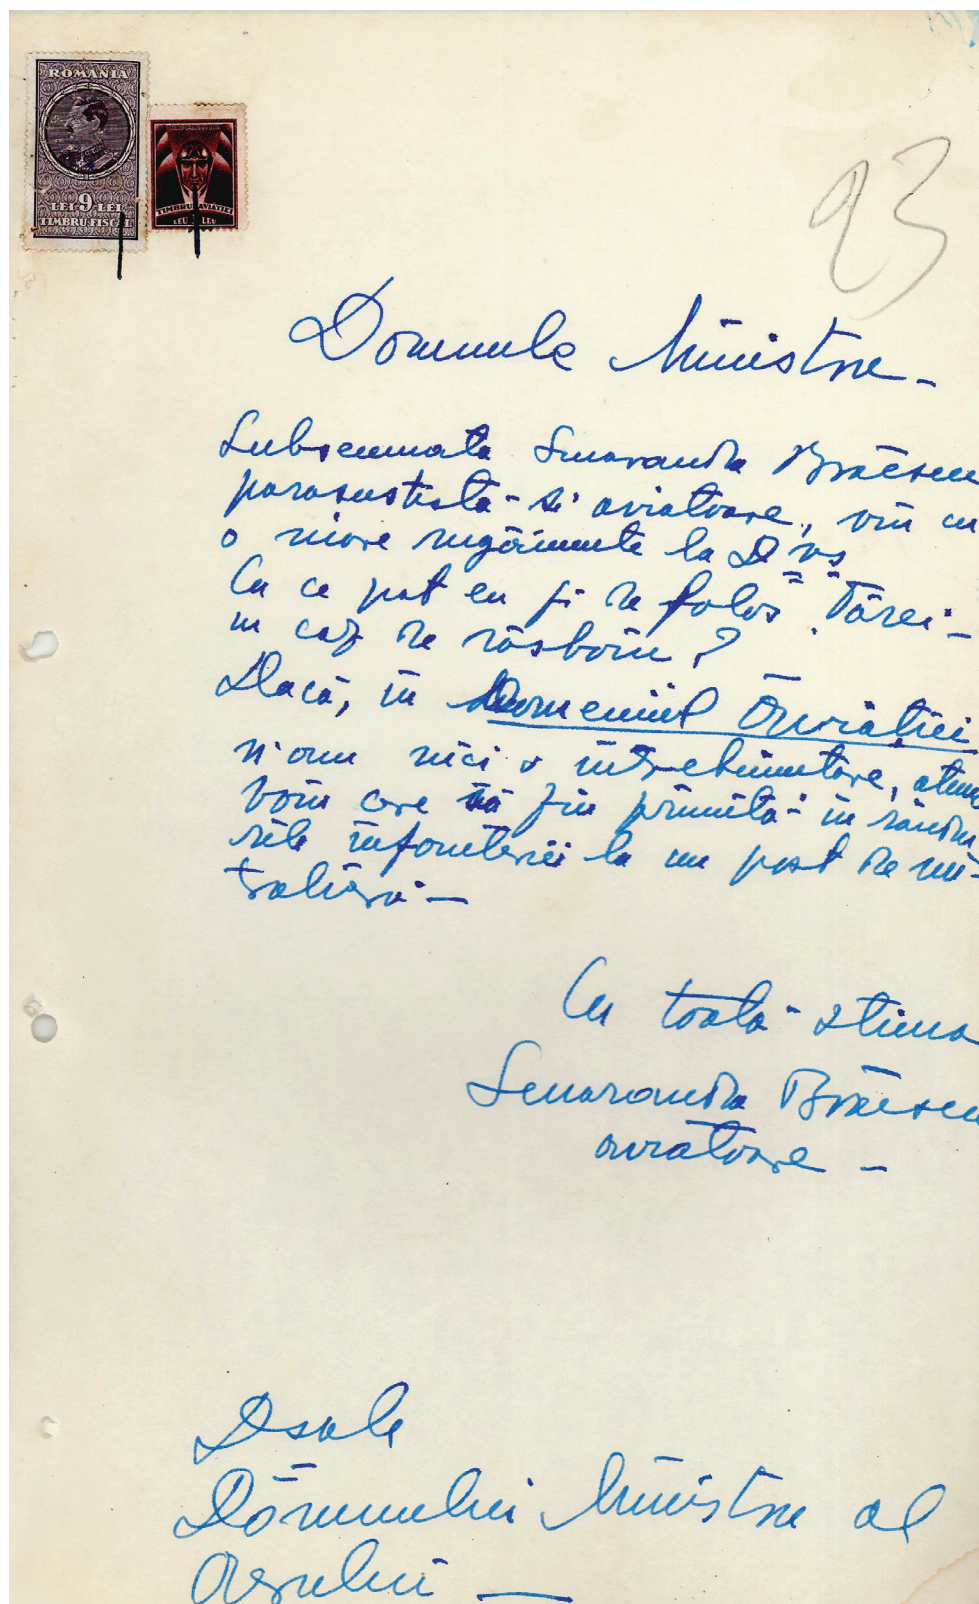 ROMANIA
LEI 9 LEI
TIMBRU FISCAL
TIMBRUL AVIAȚIEI
LEU LEU
93
Domnule Ministre -
Subsemnata Smaranda Brăescu
parasutistă - si aviatoare, vin cu
o mare rugăminte la D vs
Cu ce pot eu fi de folos Tărei -
in caz de răsboiu?
Dacă, in Domeniul Aviatiei
n'am nici o intrebuintare, atunci
voiu cere să fiu primită - in rându-
rile infanteriei la un post de mi-
tralieră -
Cu toată - stima
Smaranda Brăescu
aviatoare -
Dsale
Domnului Ministru al
Aerului -